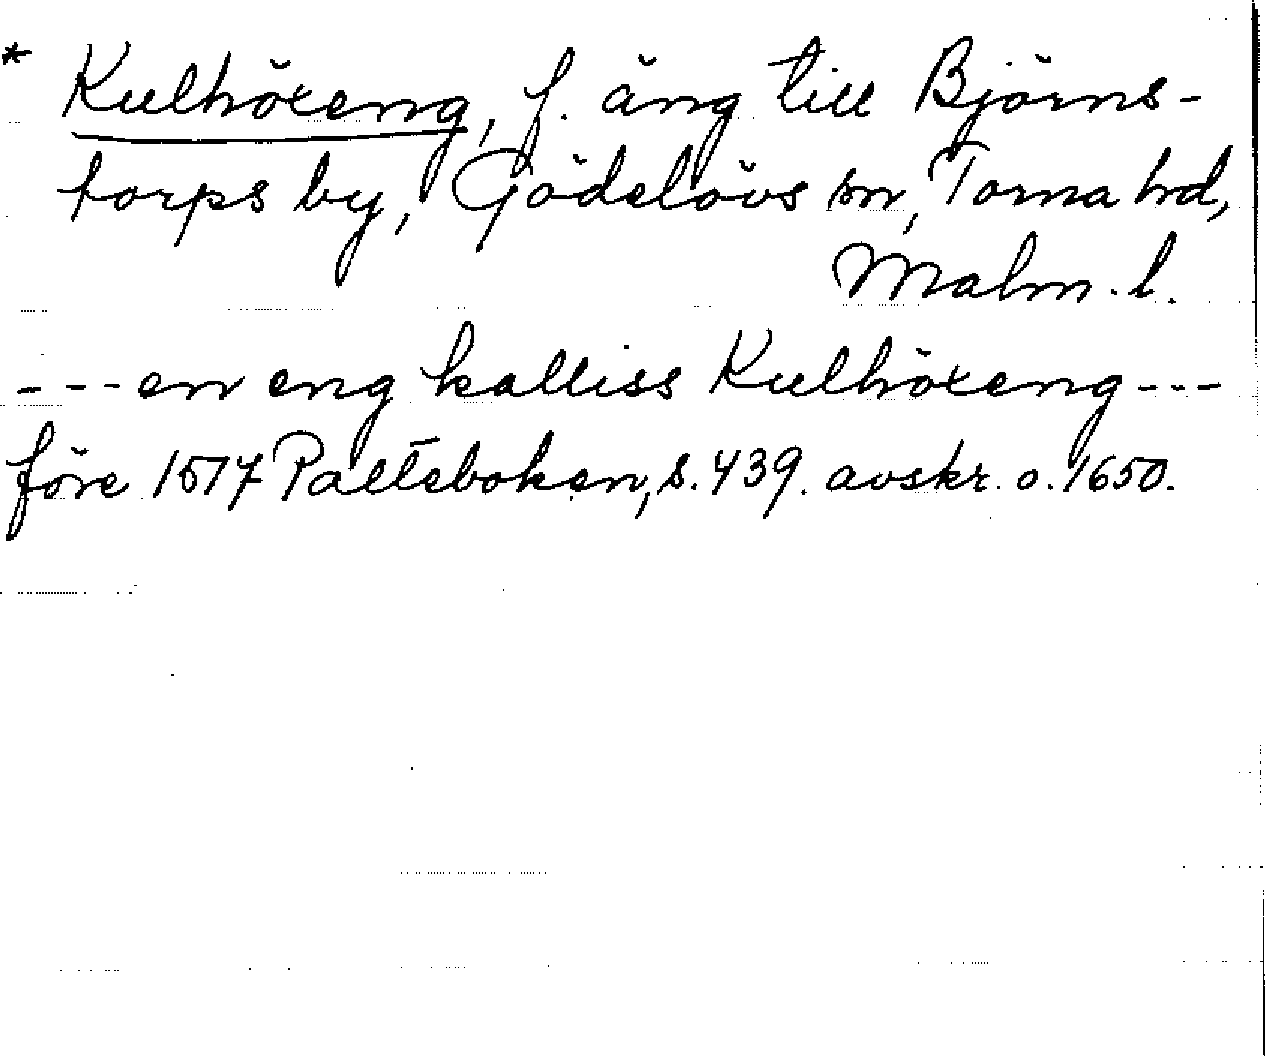 * Kulhöxeng, f. äng till Björns-
torps by, Gödelövs sn, Torna hd,
Malm. l.
--- en eng kalliss Kulhöxeng ---
före 1517 Palteboken, s. 439. avskr. o. 1650.